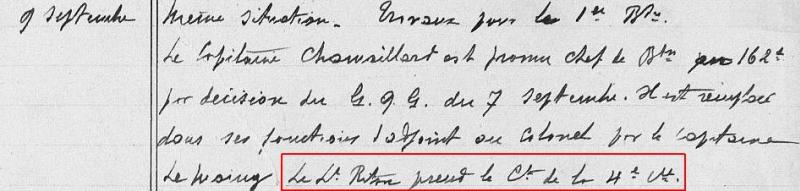 9 Septembre
Même situation. Travaux pour le 1er Btn.
Le Capitaine Chauvillart est promu chef de Btn au 162e
par décision du G.Q.G. du 7 Septembre. Il est remplacé
dans ses fonctions d'adjoint au colonel par le Capitaine
Le Lt prend le Ct de la 4e Cie.